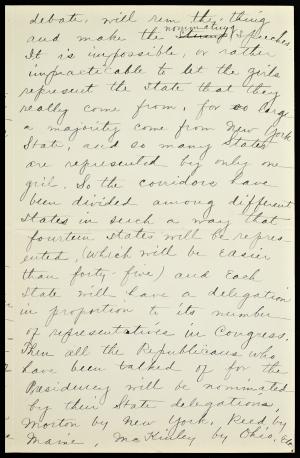 debate, will rem the thing
nominating
and make the speeches.
It is impossible, or rather
impracticable to let the girls
represent the State that they
really come from, for so large
a majority come from New York
State, and so many States
are represented by only one
girl. So the corridors have
been divided among different
States in such a way that
fourteen States will be repres
ented, (which will be easier
than forty-five) and each
State will have a delegation
in proportion to its number
of representatives in Congress.
Then all the Republicans who
have been talked of for the
Presidency will be nominated
by their State delegations,
Morton by New York, Reed by
Maine, McKinley by Ohio, etc.